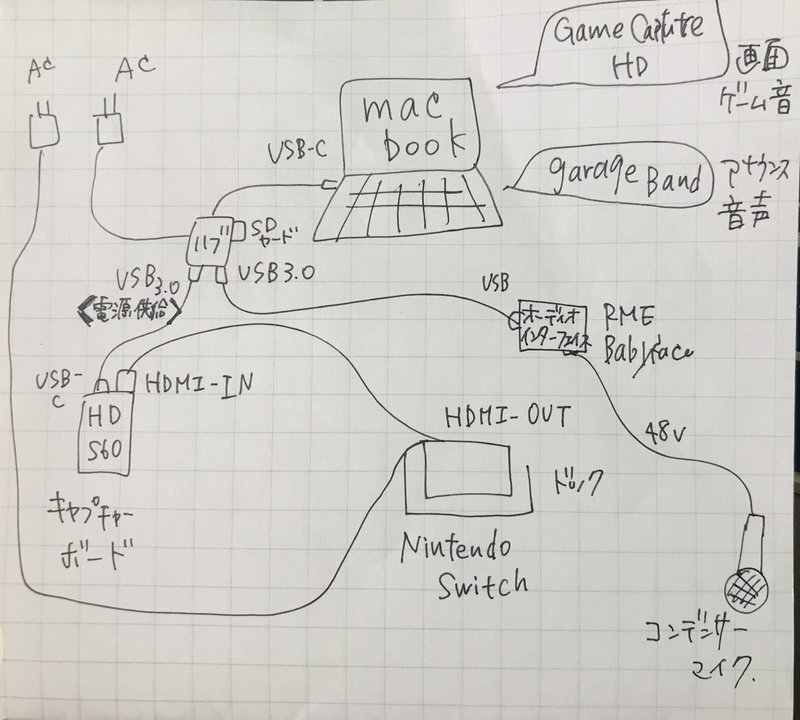 Game Capture
HD
画面
ゲーム音
AC
AC
mac
book
USB-C
garage Band
アナウンス
音声
ハブ
SD
カード
USB3.0
USB3.0
《電源供給》
USB
オーディオ
インターフェイス
RME
Babyface
USB-
C
HDMI-IN
HD
S60
HDMI-OUT
48V
ドック
キャプチャー
ボード
Nintendo
Switch
コンデンサー
マイク.